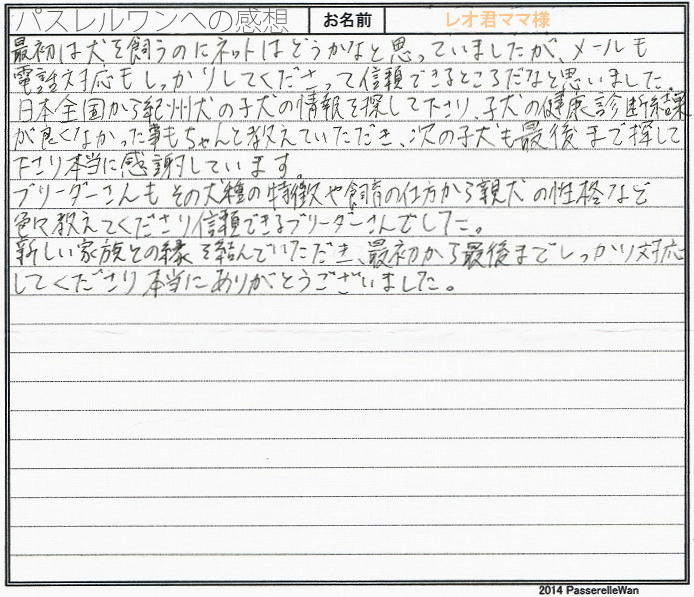 パスレルワンへの感想 お名前 レオ君ママ様
最初は犬を飼うのにネットはどうかなと思っていましたが、メールも
電話対応もしっかりしてくださって信頼できるところだなと思いました。
日本全国から紀州犬の子犬の情報を探して下さり、子犬の健康診断結果
が良くなかった事もちゃんと教えていただき、次の子犬も最後まで探して
下さり本当に感謝しています。
ブリーダーさんもその犬種の特徴や飼育の仕方から親犬の性格など
色々教えてくださり信頼できるブリーダーさんでした。
新しい家族との縁を結んでいただき、最初から最後までしっかり対応
してくださり本当にありがとうございました。
2014 PasserelleWan